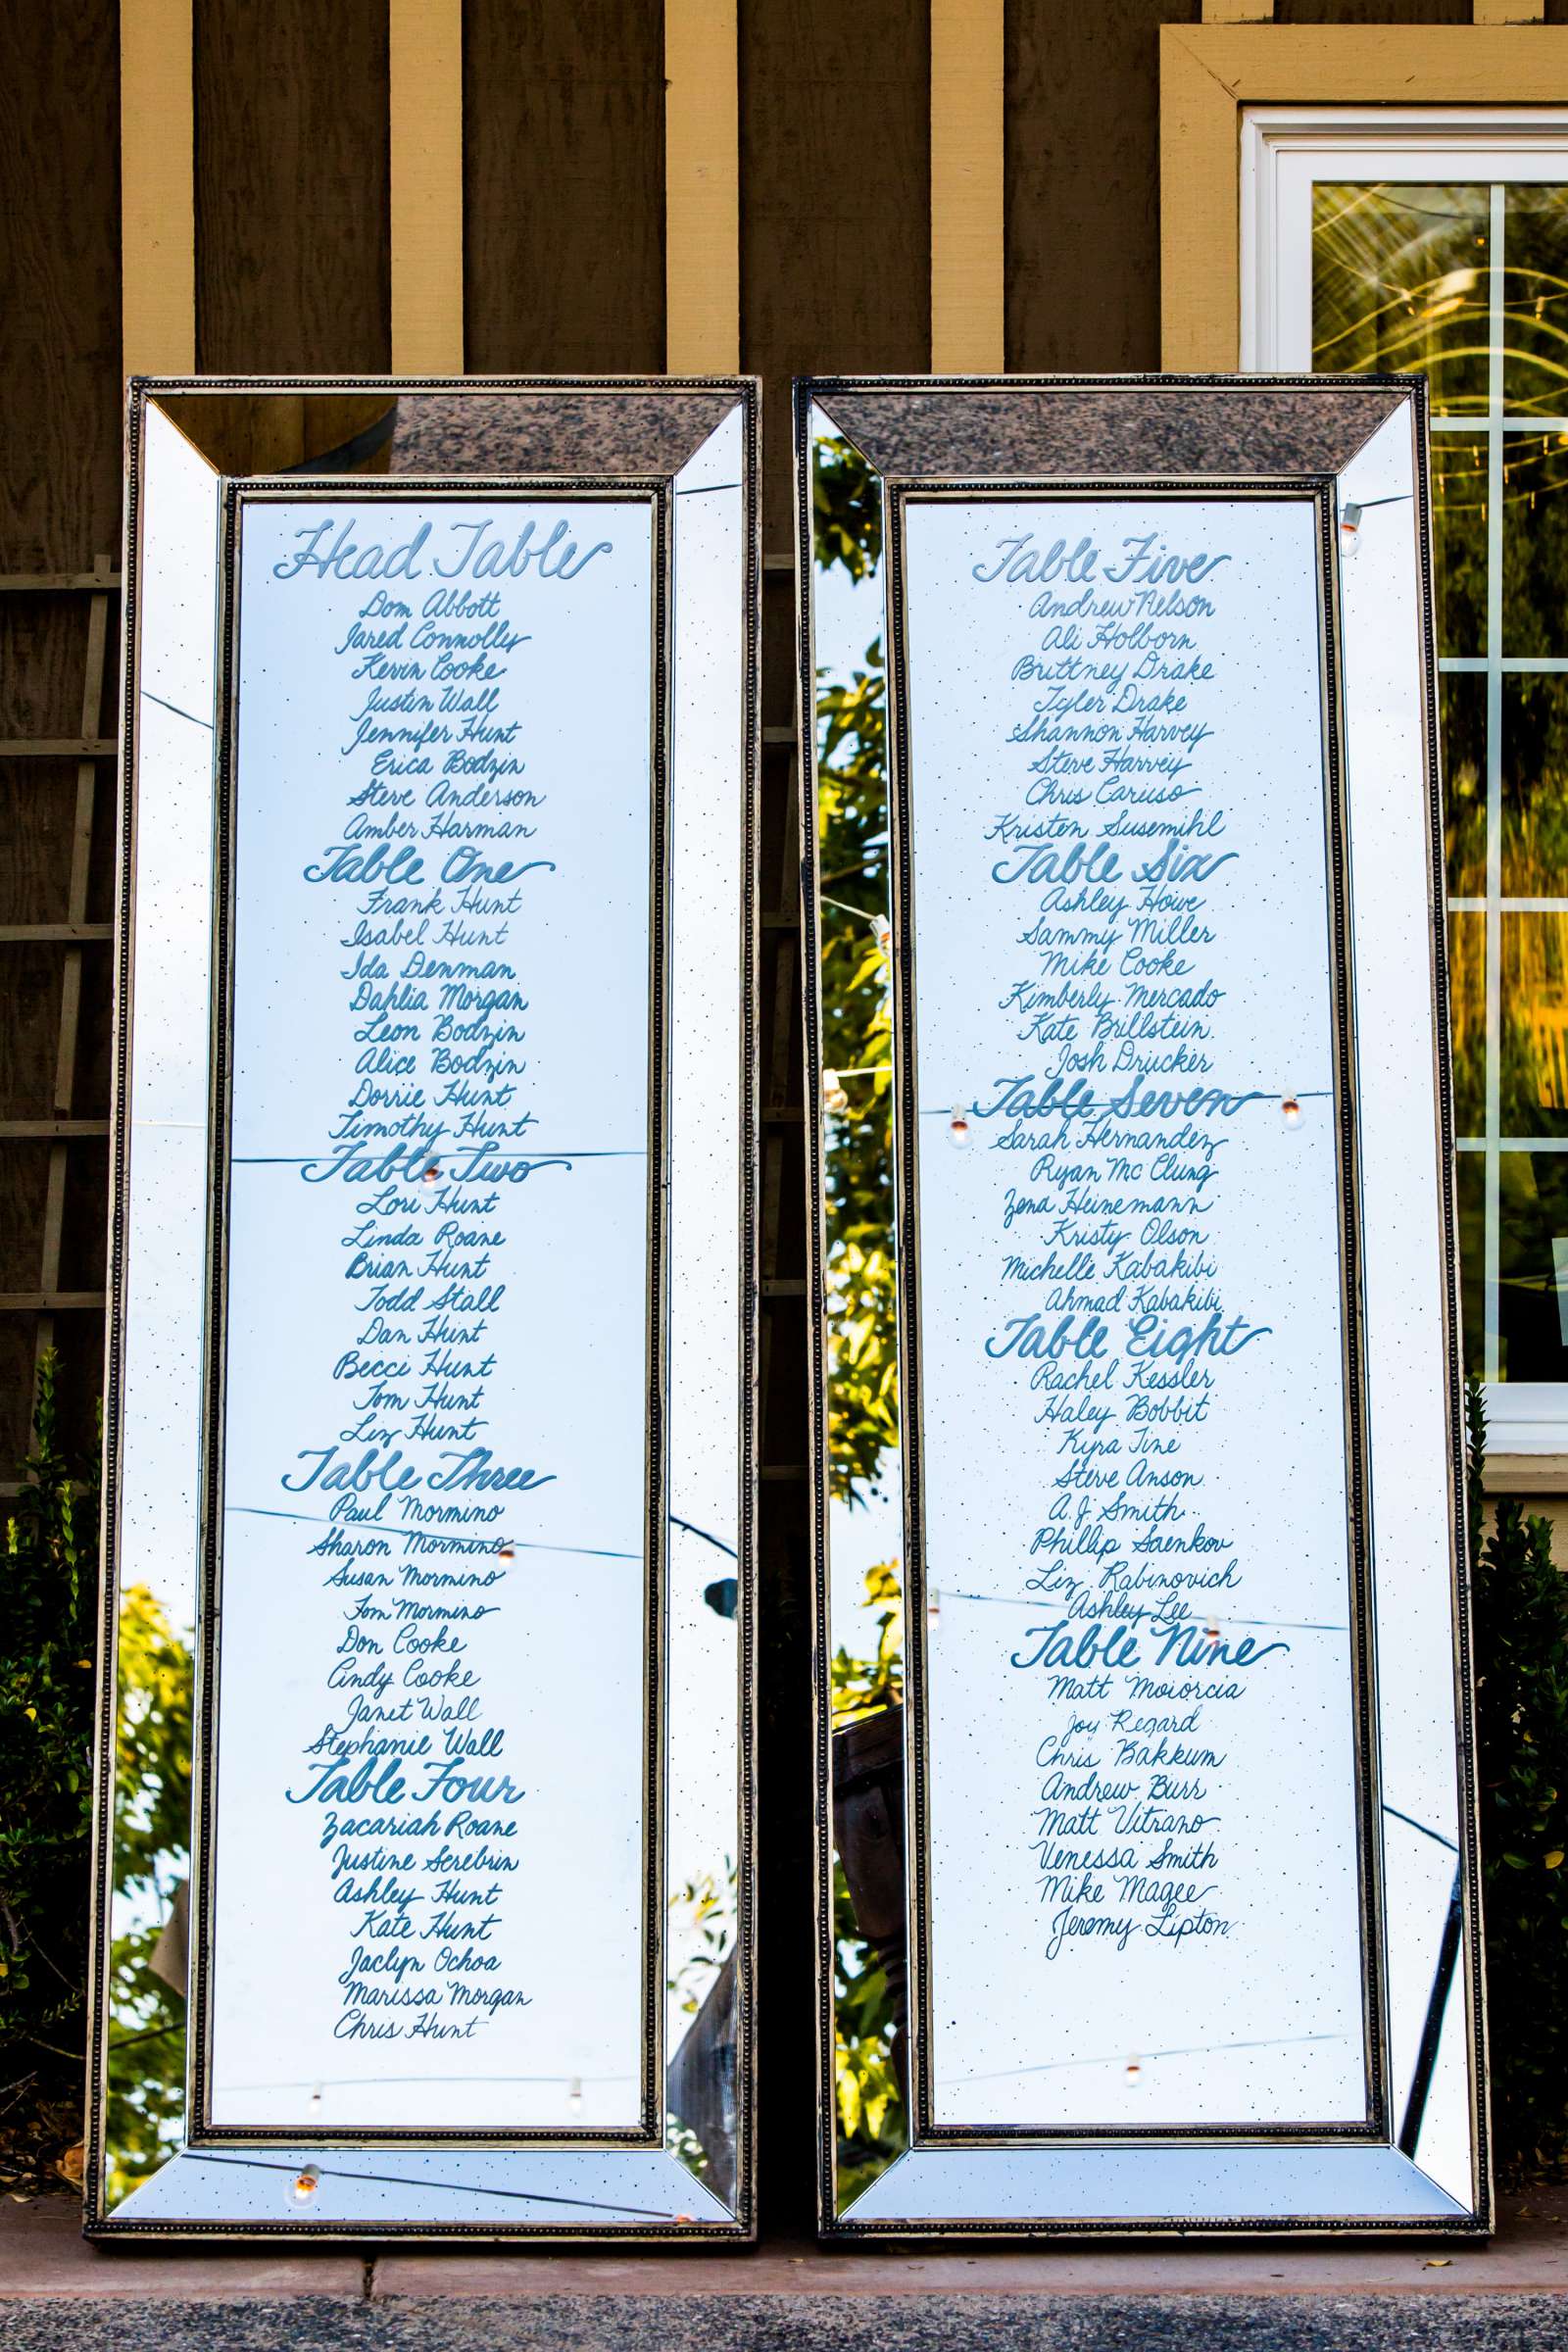 Head Table
Dom Abbott
Jared Connolly
Kevin Cooke
Justin Wall
Jennifer Hunt
Erica Bodzin
Steve Anderson
Amber Harman
Table One
Frank Hunt
Isabel Hunt
Ida Denman
Dahlia Morgan
Leon Bodzin
Alice Bodzin
Dorrie Hunt
Timothy Hunt
Table Two
Lori Hunt
Linda Roane
Brian Hunt
Todd Stall
Dan Hunt
Becci Hunt
Tom Hunt
Liz Hunt
Table Three
Paul Mormino
Sharon Mormino
Susan Mormino
Tom Mormino
Don Cooke
Cindy Cooke
Janet Wall
Stephanie Wall
Table Four
Zacariah Roane
Justine Serebrin
Ashley Hunt
Kate Hunt
Jaclyn Ochoa
Marissa Morgan
Chris Hunt
Table Five
Andrew Nelson
Ali Holborn
Brittney Drake
Tyler Drake
Shannon Harvey
Steve Harvey
Chris Caruso
Kristen Susemihl
Table Six
Ashley Howe
Sammy Miller
Mike Cooke
Kimberly Mercado
Kate Brillstein
Josh Drucker
Table Seven
Sarah Hernandez
Ryan Mc Clung
Zena Heinemann
Kristy Olson
Michelle Kabakibi
Ahmad Kabakibi
Table Eight
Rachel Kessler
Haley Bobbit
Kyra Tine
Steve Anson
A.J. Smith
Phillip Saenkov
Liz Rabinovich
Ashley Lee
Table Nine
Matt Moiorcia
Joy Regard
Chris Bakkum
Andrew Burr
Matt Vitrano
Venessa Smith
Mike Magee
Jeremy Lipton